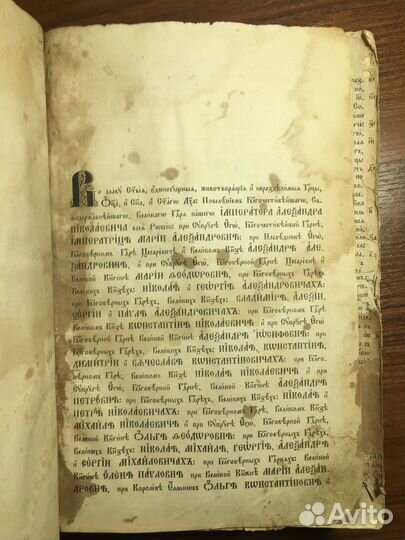 Во славу ст҃ы́ѧ, є҆диносу́щныѧ, животворѧ́щїѧ и҆ нераздѣ́лимыѧ трⷪ҇цы,
Ѻ҆ц҃а̀, и҆ сн҃а, и҆ ст҃а́гѡ дх҃а: Повелѣ́нїемъ Бл҃гочести́вѣйшагѡ, Са-
модержа́внѣйшагѡ, Вели́кагѡ Гдⷭ҇рѧ на́шегѡ І҆МПЕРА́ТОРА А҆ЛЕѮА́НДРА
НІКОЛА́ЕВИЧА всеѧ̀ Рѡссі́и: при Сꙋпрꙋ́гѣ Є҆гѡ̀, Бл҃гочести́вѣйшей Гдⷭ҇рнѣ,
І҆МПЕРАТРИ́ЦѢ МАРІ́И А҆ЛЕѮА́НДРОВНѢ: при Наслѣ́дникѣ Є҆гѡ̀,
Бл҃говѣ́рномъ Гдⷭ҇рѣ Цесаре́вичѣ и҆ Вели́комъ Кн҃зѣ А҆ЛЕѮА́НДРѢ А҆ЛЕ-
ѮА́НДРОВИЧѢ, и҆ при Сꙋпрꙋ́гѣ Є҆гѡ̀, Бл҃говѣ́рной Гдⷭ҇рнѣ Цесаре́внѣ и҆
Вели́кой Кн҃ги́нѣ МАРІ́И Ѳ҆ЕѠ́ДОРОВНѢ: при Бл҃говѣ́рныхъ Гдⷭ҇рѣхъ,
Вели́кихъ Кн҃зѣ́хъ: НІКОЛА́Ѣ и҆ ГЕѠ́РГІИ А҆ЛЕѮА́НДРОВИЧАХЪ: при
Бл҃говѣ́рныхъ Гдⷭ҇рѣхъ, Вели́кихъ Кн҃зѣ́хъ: ВЛАДИ́МІРѢ, А҆ЛЕѮІ́И,
СЕ́РГІИ и҆ ПА́ѴЛѢ А҆ЛЕѮА́НДРОВИЧАХЪ: при Бл҃говѣ́рномъ Гдⷭ҇рѣ,
Вели́комъ Кн҃зѣ КѠНСТАНТІ́НѢ НІКОЛА́ЕВИЧѢ, и҆ при Сꙋпрꙋ́гѣ Є҆гѡ̀,
Бл҃говѣ́рной Гдⷭ҇рнѣ, Вели́кой Кн҃ги́нѣ А҆ЛЕѮА́НДРѢ І҆Ѡ́СИФОВНѢ: при
Бл҃говѣ́рныхъ Гдⷭ҇рѣхъ, Вели́кихъ Кн҃зѣ́хъ: НІКОЛА́Ѣ, КѠНСТАНТІ́НѢ,
ДИМИ́ТРІИ и҆ ВѦЧЕСЛА́ВѢ КѠНСТАНТІ́НОВИЧАХЪ: при Бл҃го-
вѣ́рномъ Гдⷭ҇рѣ, Вели́комъ Кн҃зѣ НІКОЛА́Ѣ НІКОЛА́ЕВИЧѢ и҆ при
Сꙋпрꙋ́гѣ Є҆гѡ̀, Бл҃говѣ́рной Гдⷭ҇рнѣ, Вели́кой Кн҃ги́нѣ А҆ЛЕѮА́НДРѢ
ПЕТРО́ВНѢ: при Бл҃говѣ́рныхъ Гдⷭ҇рѣхъ, Вели́кихъ Кн҃зѣ́хъ: НІКОЛА́Ѣ и҆
ПЕТРѢ̀ НІКОЛА́ЕВИЧАХЪ: при Бл҃говѣ́рномъ Гдⷭ҇рѣ, Вели́комъ Кн҃зѣ
МІХАИ́ЛѢ НІКОЛА́ЕВИЧѢ и҆ при Сꙋпрꙋ́гѣ Є҆гѡ̀, Бл҃говѣ́рной Гдⷭ҇рнѣ,
Вели́кой Кн҃ги́нѣ Ѻ҆́ЛЬГѢ Ѳ҆ЕѠ́ДОРОВНѢ: при Бл҃говѣ́рныхъ Гдⷭ҇рѣхъ,
Вели́кихъ Кн҃зѣ́хъ: НІКОЛА́Ѣ, МІХАИ́ЛѢ, ГЕѠ́РГІИ, А҆ЛЕѮА́НДРѢ
и҆ СЕ́РГІИ МІХА́ЙЛОВИЧАХЪ: при Бл҃говѣ́рной Гдⷭ҇рнѣ, Вели́кой
Кн҃ги́нѣ Є҆ЛЕ́НѢ ПА́ѴЛОВНѢ: при Вели́кой Кн҃жнѣ̀ МАРІ́И А҆ЛЕѮА́Н-
ДРОВНѢ, при Короле́вѣ Є҆́ллинѡвъ Ѻ҆́ЛЬГѢ КѠНСТАНТІ́НОВНѢ и҆
Avito